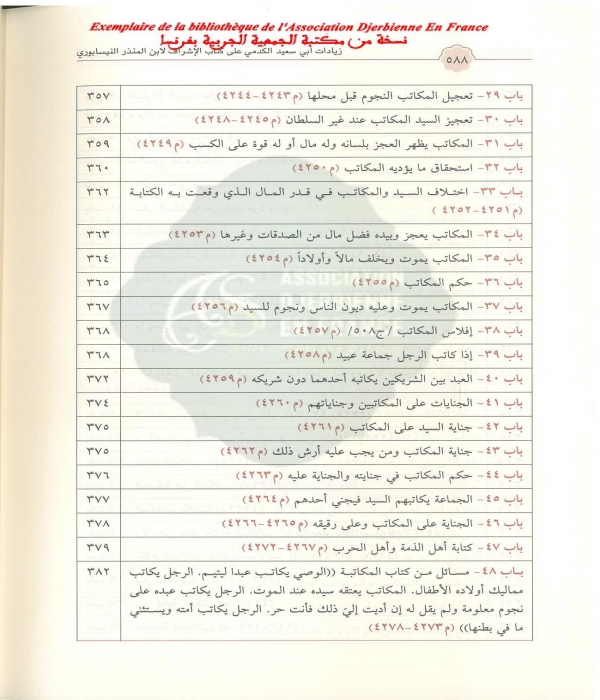 Exemplaire de la bibliothèque de l'Association Djerbienne En France
نسخة من مكتبة الجمعية الجربية بفرنسا
زيادات أبي سعيد الكدمي على كتاب الإشراف لابن المنذر النيسابوري
٥٨٨
باب ٢٩- تعجيل المكاتب النجوم قبل محلها (م٤٢٤٣-٤٢٤٤) ٣٥٧
باب ٣٠- تعجيز السيد المكاتب عند غير السلطان (م٤٢٤٥-٤٢٤٨) ٣٥٨
باب ٣١- المكاتب يظهر العجز بلسانه وله مال أو له قوة على الكسب (م٤٢٤٩) ٣٥٩
باب ٣٢- استحقاق ما يؤديه المكاتب (م٤٢٥٠) ٣٦٠
باب ٣٣- اختلاف السيد والمكاتب في قدر المال الذي وقعت به الكتابة ٣٦٢
(م٤٢٥١-٤٢٥٢ )
باب ٣٤- المكاتب يعجز وبيده فضل مال من الصدقات وغيرها (م٤٢٥٣) ٣٦٣
باب ٣٥- المكاتب يموت ويخلف مالاً وأولاداً (م٤٢٥٤) ٣٦٤
باب ٣٦- حكم المكاتب (م٤٢٥٥) ٣٦٥
باب ٣٧- المكاتب يموت وعليه ديون الناس ونجوم للسيد (م٤٢٥٦) ٣٦٧
باب ٣٨- إفلاس المكاتب /ج٥٠٨/ (م٤٢٥٧) ٣٦٨
باب ٣٩- إذا كاتب الرجل جماعة عبيد (م٤٢٥٨) ٣٦٨
باب ٤٠- العبد بين الشريكين يكاتبه أحدهما دون شريكه (م٤٢٥٩) ٣٧٢
باب ٤١- الجنايات على المكاتبين وجناياتهم (م٤٢٦٠) ٣٧٤
باب ٤٢- جناية السيد على المكاتب (م٤٢٦١) ٣٧٥
باب ٤٣- جناية المكاتب ومن يجب عليه أرش ذلك (م٤٢٦٢) ٣٧٥
باب ٤٤- حكم المكاتب في جنايته والجناية عليه (م٤٢٦٣) ٣٧٦
باب ٤٥- الجماعة يكاتبهم السيد فيجني أحدهم (م٤٢٦٤) ٣٧٧
باب ٤٦- الجناية على المكاتب وعلى رقيقه (م٤٢٦٥-٤٢٦٦) ٣٧٨
باب ٤٧- كتابة أهل الذمة وأهل الحرب (م٤٢٦٧-٤٢٧٢) ٣٧٩
باب ٤٨- مسائل من كتاب المكاتبة ((الوصي يكاتب عبدا ليتيم. الرجل يكاتب ٣٨٢
مماليك أولاده الأطفال. المكاتب يعتقه سيده عند الموت. الرجل يكاتب عبده على
نجوم معلومة ولم يقل له إن أديت إليّ ذلك فأنت حر. الرجل يكاتب أمته ويستثني
ما في بطنها)) (م٤٢٧٣-٤٢٧٨)
ASSOCIATION
DJERBIENNE
EN FRANCE